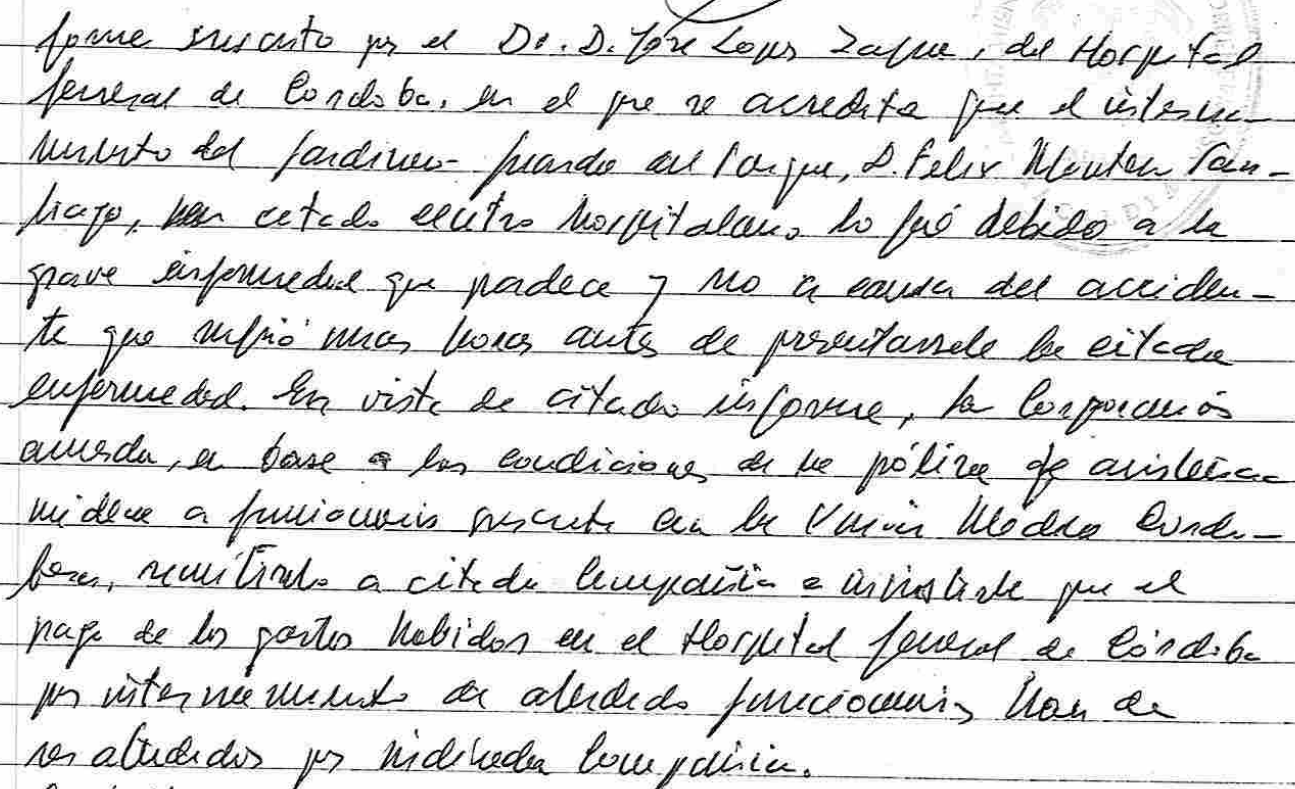 forme suscrito por el Dr. D. José Lopez Zafra, del Hospital
General de Cordoba, en el que se acredita que el interna-
miento del Jardinero-guarda del Parque, D. Felix Santiago,
en citado centro hospitalario lo fué debido a la
grave enfermedad que padece y no a causa del acciden-
te que sufrió unas horas antes de presentarsele la citada
enfermedad. En vista de citado informe, la Corporación
acuerda, en base a las condiciones de la póliza de asistencia
médica a funcionarios suscrita con la Unión Médica Cordo-
besa, remitirlo a citada Compañia e que el
pago de los gastos habidos en el Hospital General de Córdoba
por internamiento de aludido funcionario han de
ser atendidos por indicada Compañia.